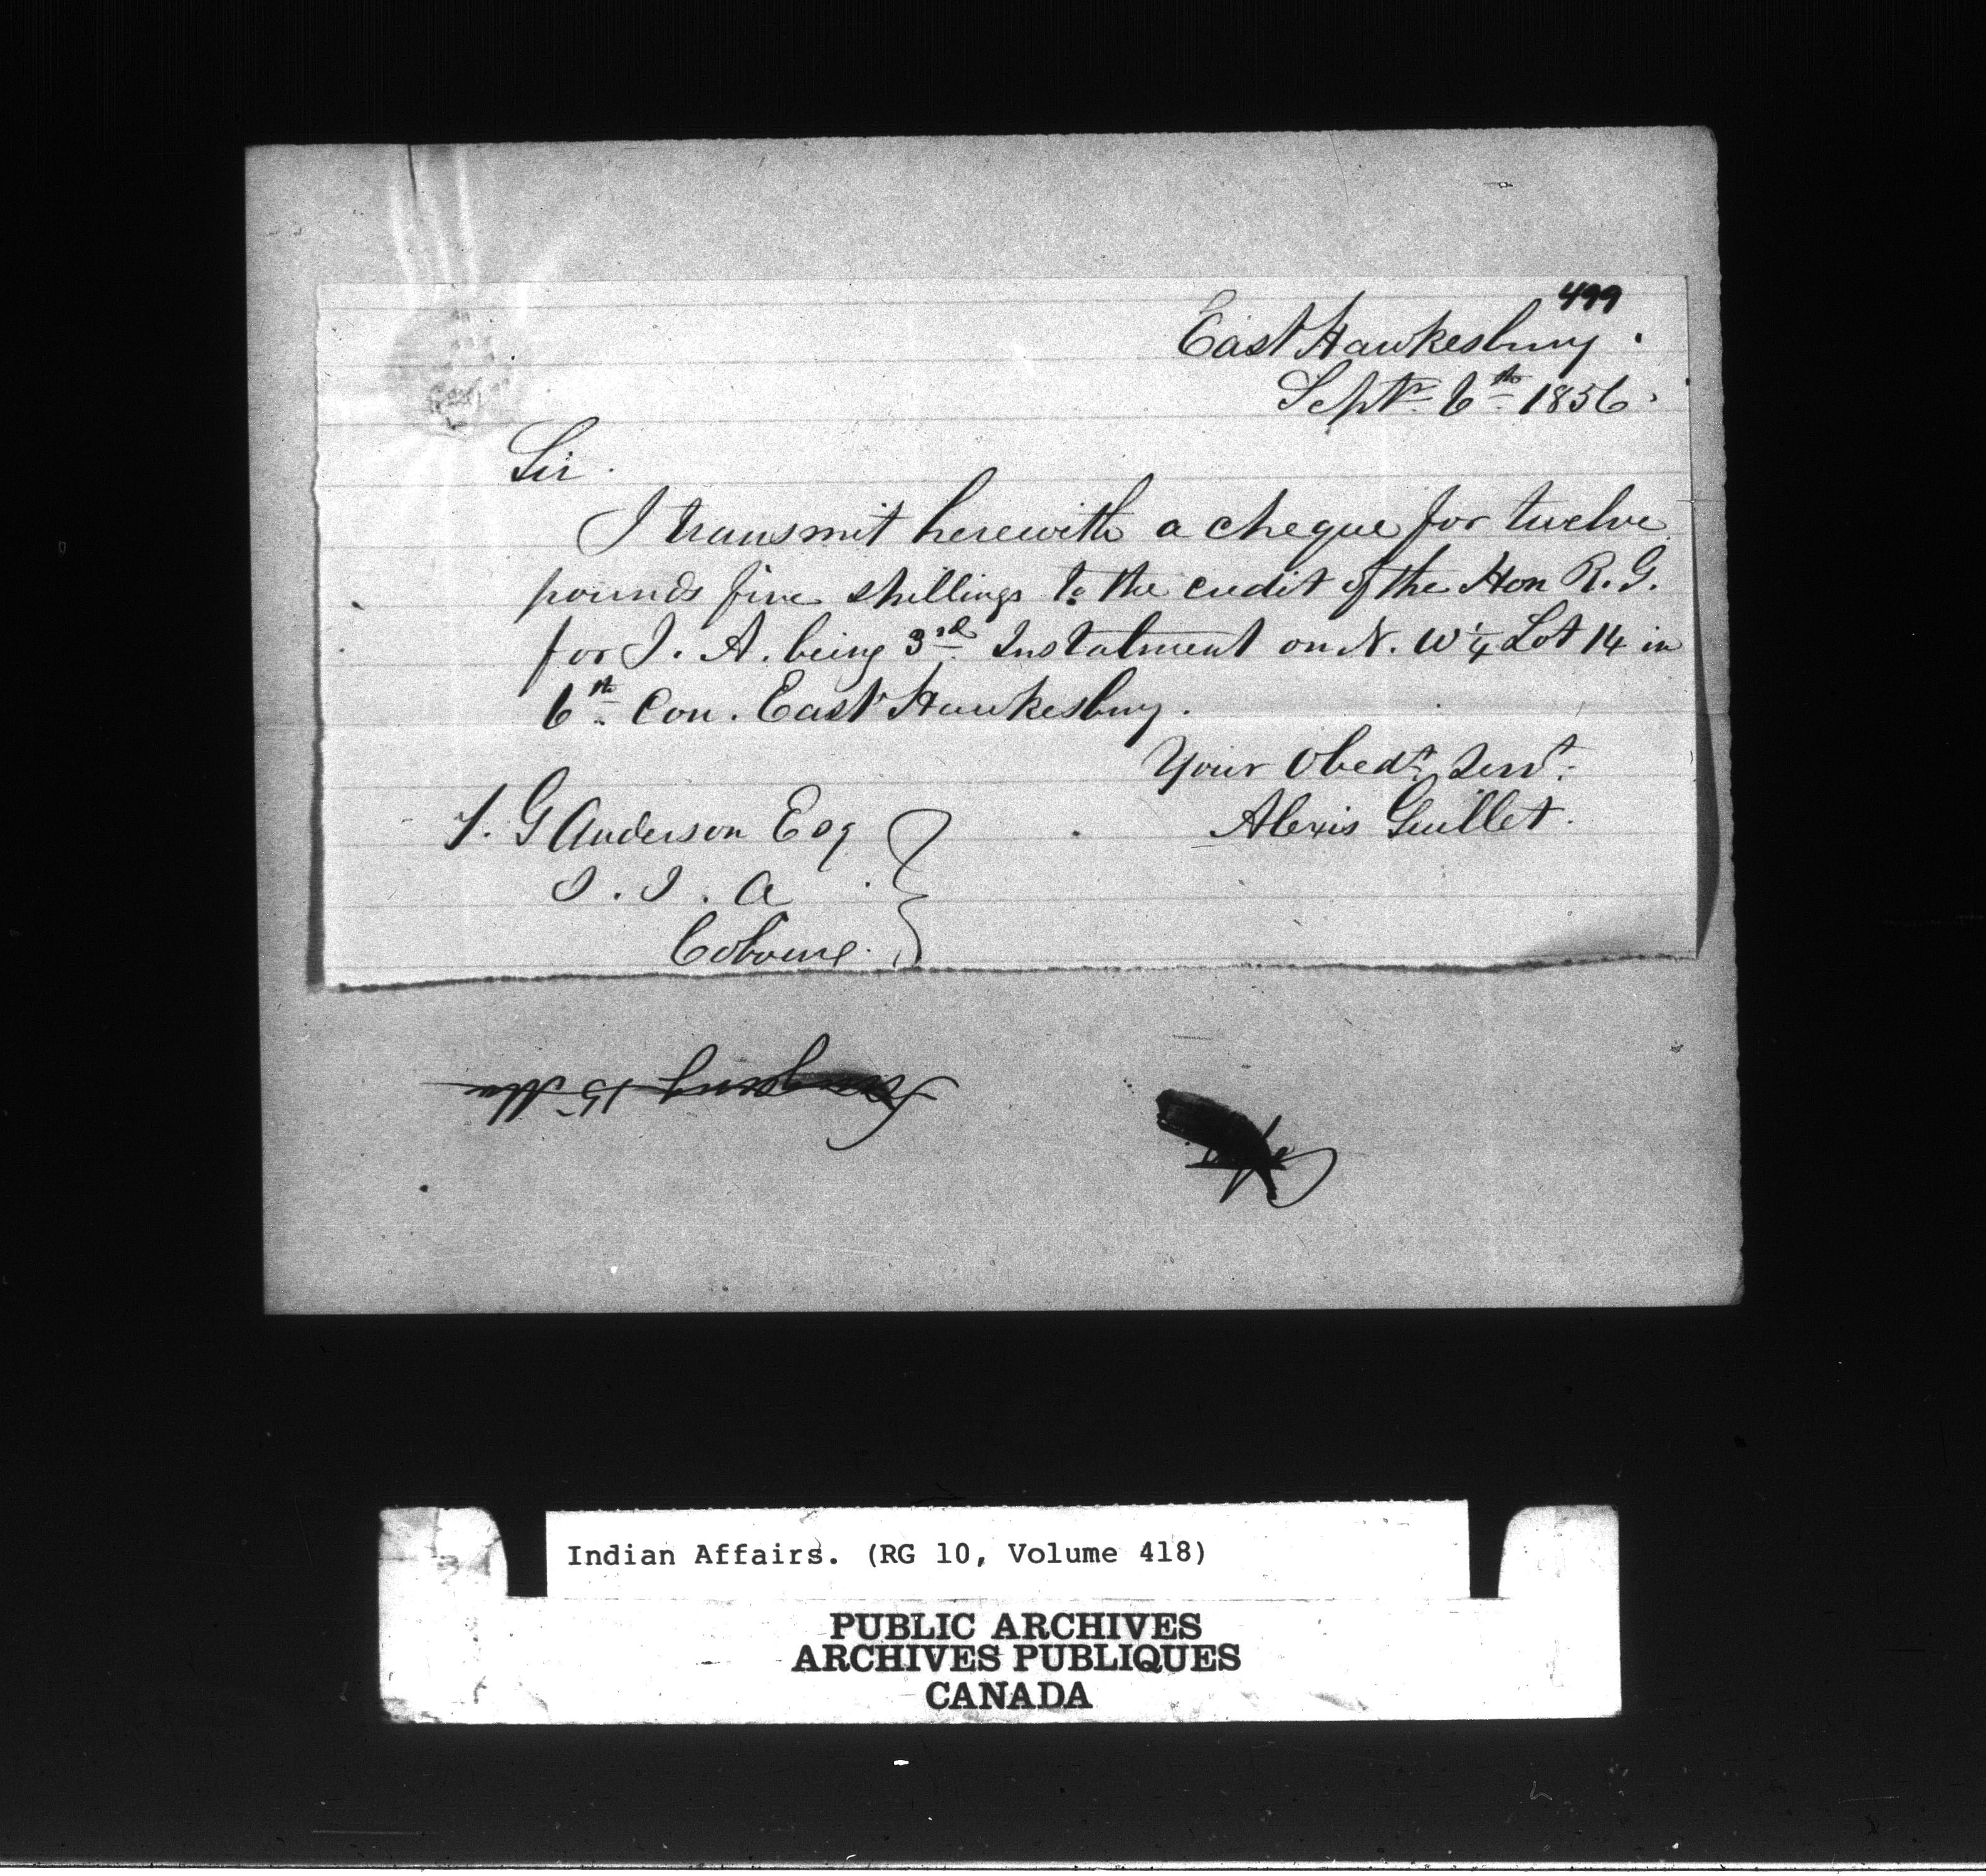 499
East Hawkesbury.
Septr. 6th 1856.
Sir.
I transmit herewith a cheque for twelve
pounds five shillings to the credit of the Hon R. G.
for I. A. being 3rd Instalment on N. W 1/4 Lot 14 in
6th Con. East Hawkesbury.
Your Obedt. Servt.
Alexis Guillet.
T. G Anderson Esq
S. I. A
Cobourg.
15
Indian Affairs. (RG 10, Volume 418)
PUBLIC ARCHIVES
ARCHIVES PUBLIQUES
CANADA